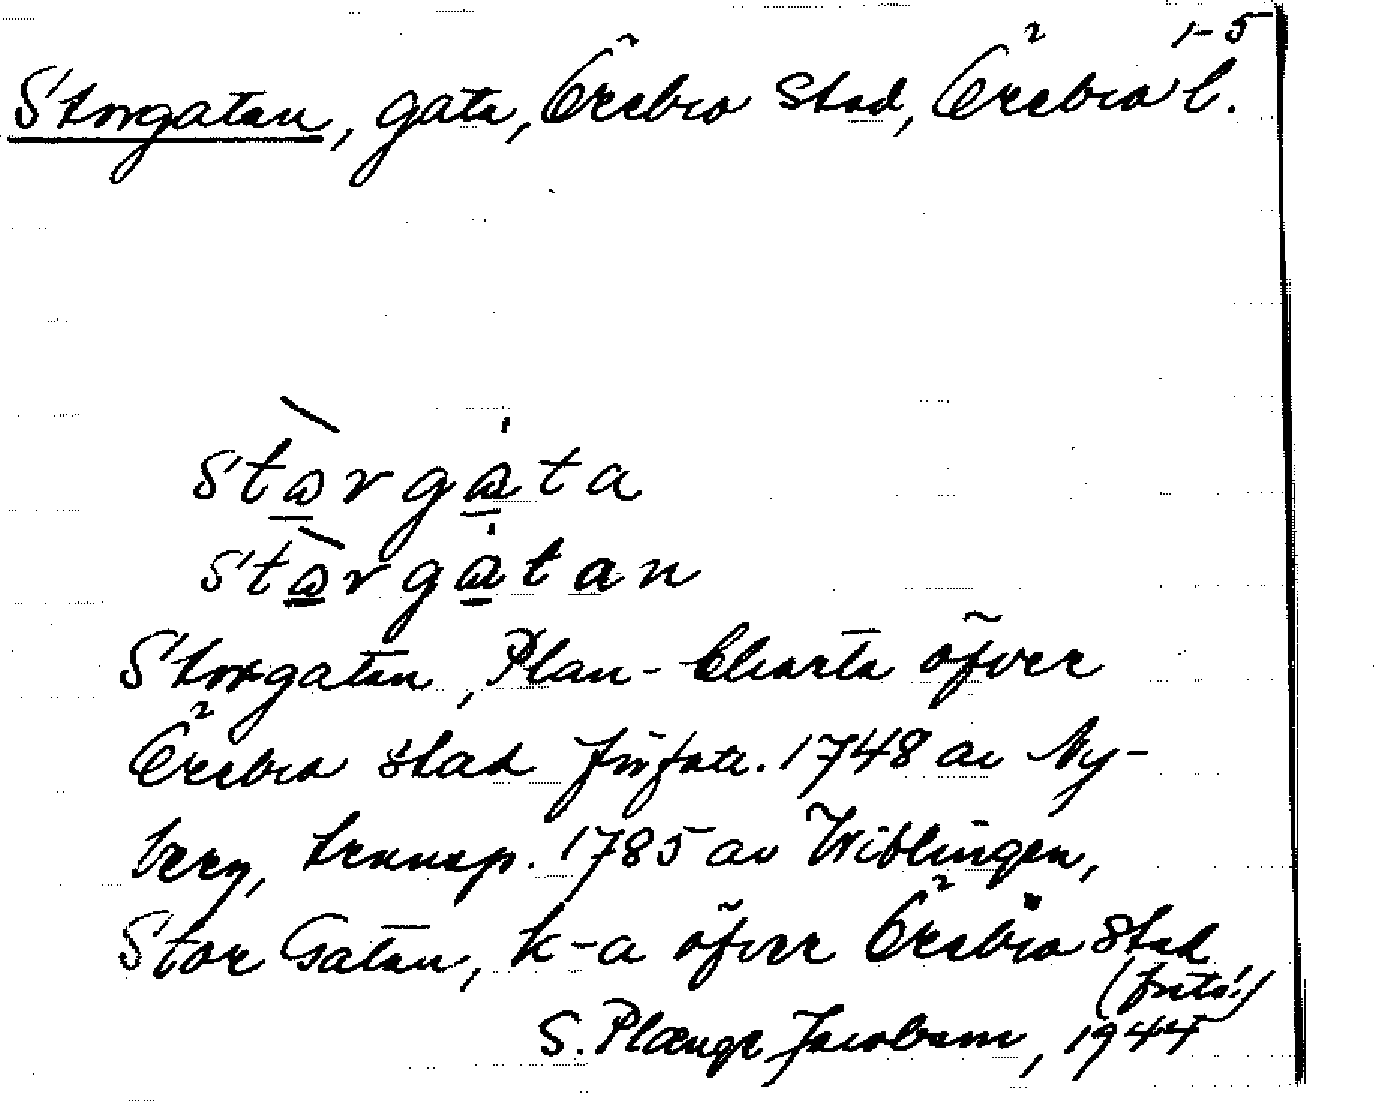 1-5
Storgatan, gata, Örebro stad, Örebro l.
Storgata
Storgatan
Storgatan, Plan-Charta öfver
Örebro stad författ. 1748 av Ny-
berg, transp. 1785 av Wiblingen,
Stor Gatan, k-a öfver Örebro stad
(foto!)
S. Plænge Jacobson, 1944